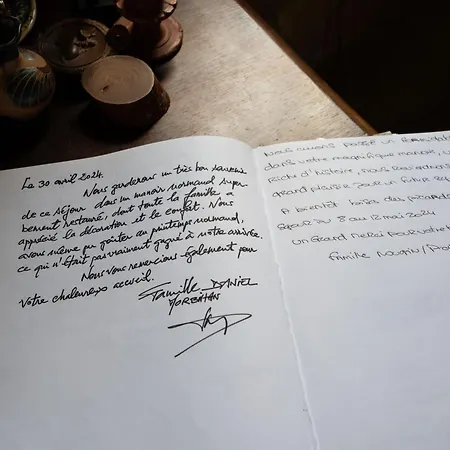 Le 30 avril 2024.
Nous garderons un très bon souvenir
de ce séjour dans un manoir normand super-
bement restauré, dont toute la famille a
apprécié la décoration et le confort. Nous
avons même pu goûter au printemps normand,
ce qui n'était pas vraiment gagné à notre arrivée.
Nous vous remercions également pour
votre chaleureux accueil.
Famille DANIEL
MORBIHAN
Nous avons passé un
dans votre magnifique manoir,
riche d'histoire, nous
grand plaisir pour un futur
A bientôt
séjour du 8 au 12 mai 2024
un Grand Merci pour votre
Famille